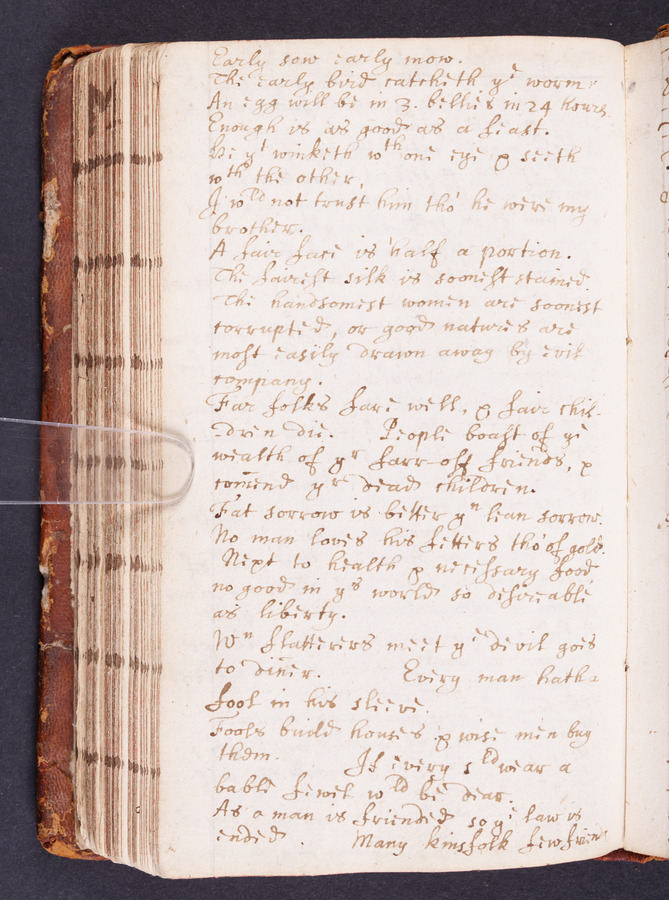 Early sow early mow.
The early bird catcheth yᵉ worm.
An egg will be in 3. bellies in 24 hours.
Enough is as good as a feast.
He yᵗ winketh wᵗʰ one eye & seeth
wᵗʰ the other,
I wˡᵈ not trust him tho' he were my
brother.
A fair face is half a portion.
The fairest silk is soonest stained.
The handsomest women are soonest
corrupted, or good natures are
most easily drawn away by evil
company.
Far folks fare well, & fair chil-
dren die. People boast of yᵉ
wealth of yʳ farr-off friends, &
com̄end yʳ dead children.
Fat sorrow is better yⁿ lean sorrow.
No man loves his fetters tho' of gold.
Next to health & necessary food
no good in yˢ world so desireable
as liberty.
Wⁿ flatterers meet yᵉ devil goes
to diner. Every man hath a
fool in his sleeve.
Fools build houses & wise men buy
them. If every sˡᵈ wear a
bable fewel wˡᵈ be dear.
As a man is friended so yᵉ law is
ended. Many kinsfolk few frien
M